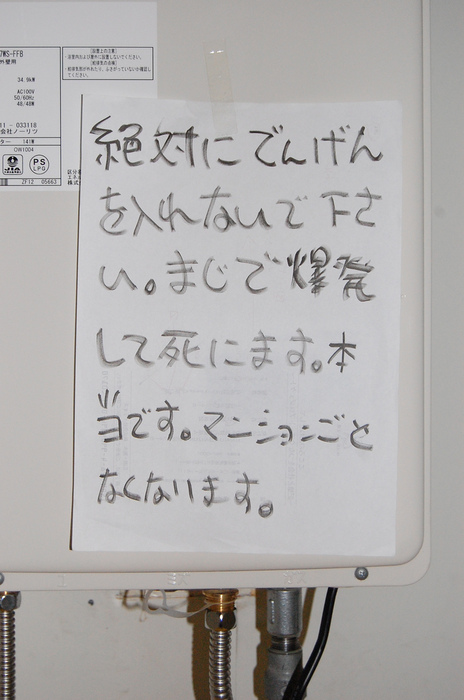 7WS-FFB
外壁用
34.9kW
AC100V
50/60Hz
48/48W
11 - 033118
会社ノーリツ
ター 141W
OW1004
PS
LPG
ZF12 05663
【設置上の注意】
絶対にでんげん
を入れないで下さ
い。まじで爆発
して死にます。本
当です。マンションごと
なくなります。